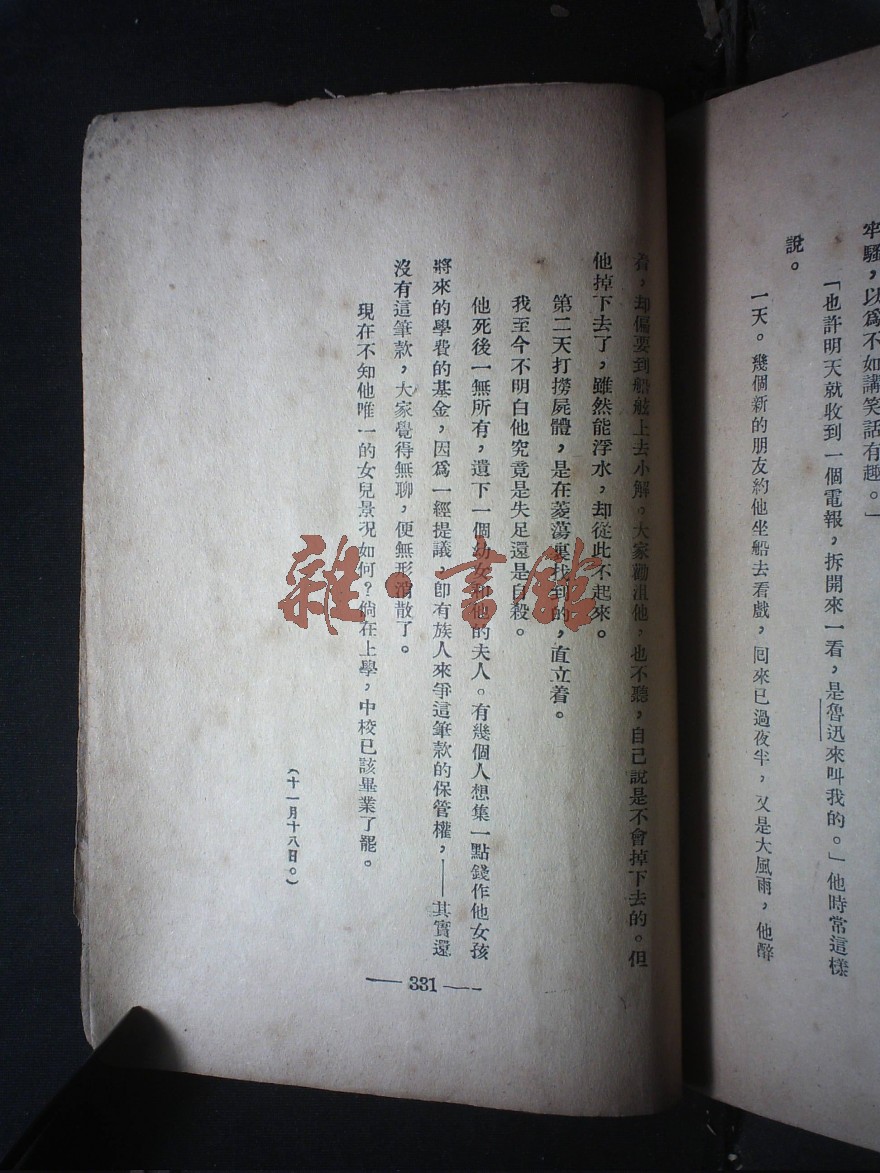 牢騷，以爲不如講笑話有趣。」
「也許明天就收到一個電報，拆開來一看，是魯迅來叫我的。」他時常這樣
說。
一天。幾個新的朋友約他坐船去看戲，回來已過夜半，又是大風雨，他醉
着，却偏要到船舷上去小解。大家勸沮他，也不聽，自己說是不會掉下去的。但
他掉下去了，雖然能浮水，却從此不起來。
第二天打撈屍體，是在菱蕩裏找到的，直立着。
我至今不明白他究竟是失足還是自殺。
他死後一無所有，遺下一個幼女和他的夫人。有幾個人想集一點錢作他女孩
將來的學費的基金，因爲一經提議，卽有族人來爭這筆款的保管權，——其實還
沒有這筆款，大家覺得無聊，便無形消散了。
現在不知他唯一的女兒景況如何？倘在上學，中校已該畢業了罷。
（十一月十八日。）
— 331 —
雜·書館